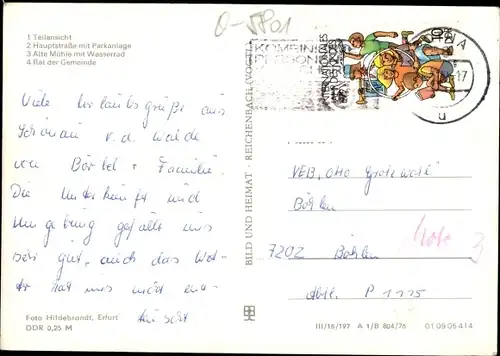 0-5801
1 Teilansicht
2 Hauptstraße mit Parkanlage
3 Alte Mühle mit Wasserrad
4 Rat der Gemeinde
Viele Urlaubsgrüße aus
Schönau v.d. Walde
von Bärbel + Familie.
Die Unterkunft und
Umgebung gefällt uns
sehr gut, auch das Wet-
ter hat uns nicht ent-
täuscht
Foto Hildebrandt, Erfurt
DDR 0,25 M
BILD UND HEIMAT · REICHENBACH (VOGTL)
KOMBINA
17
u
VEB "Otto Grotewohl"
Böhlen
7202 Böhlen
Abtl. P 1115
III/18/197 A 1/B 804/76 01 09 05 414